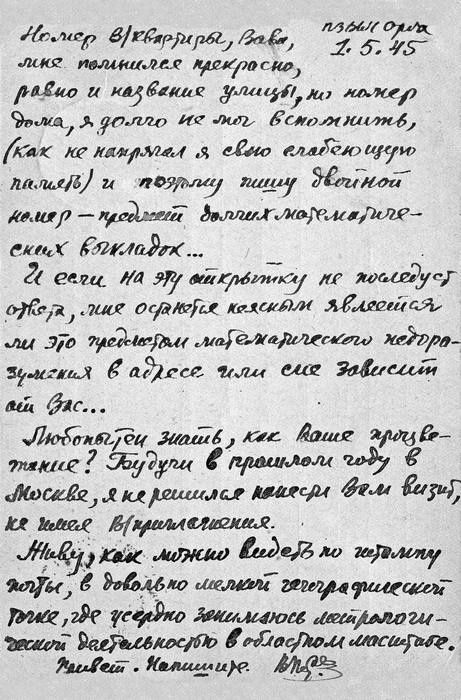 Номер В/квартиры, Вава,
1.5.45
мне помнился прекрасно,
равно и название улицы, но номер
дома, я долго не мог вспомнить,
(как не напрягал я свою слабеющую
память) и поэтому пишу двойной
номер — предмет долгих математиче-
ских выкладок...
И если на эту открытку не последует
ответа, мне останется неясным является
ли это предметом математического недора-
зумения в адресе или сие зависит
от Вас...
Любопытен знать, как Ваше процве-
тание? Будучи в прошлом году в
Москве, я не решился нанести Вам визит,
не имея В/приглашения.
Живу, как можно видеть по штампу
почты, в довольно мелкой географической
точке, где усердно занимаюсь
деятельностью в областном масштабе.
Привет. Напишите.